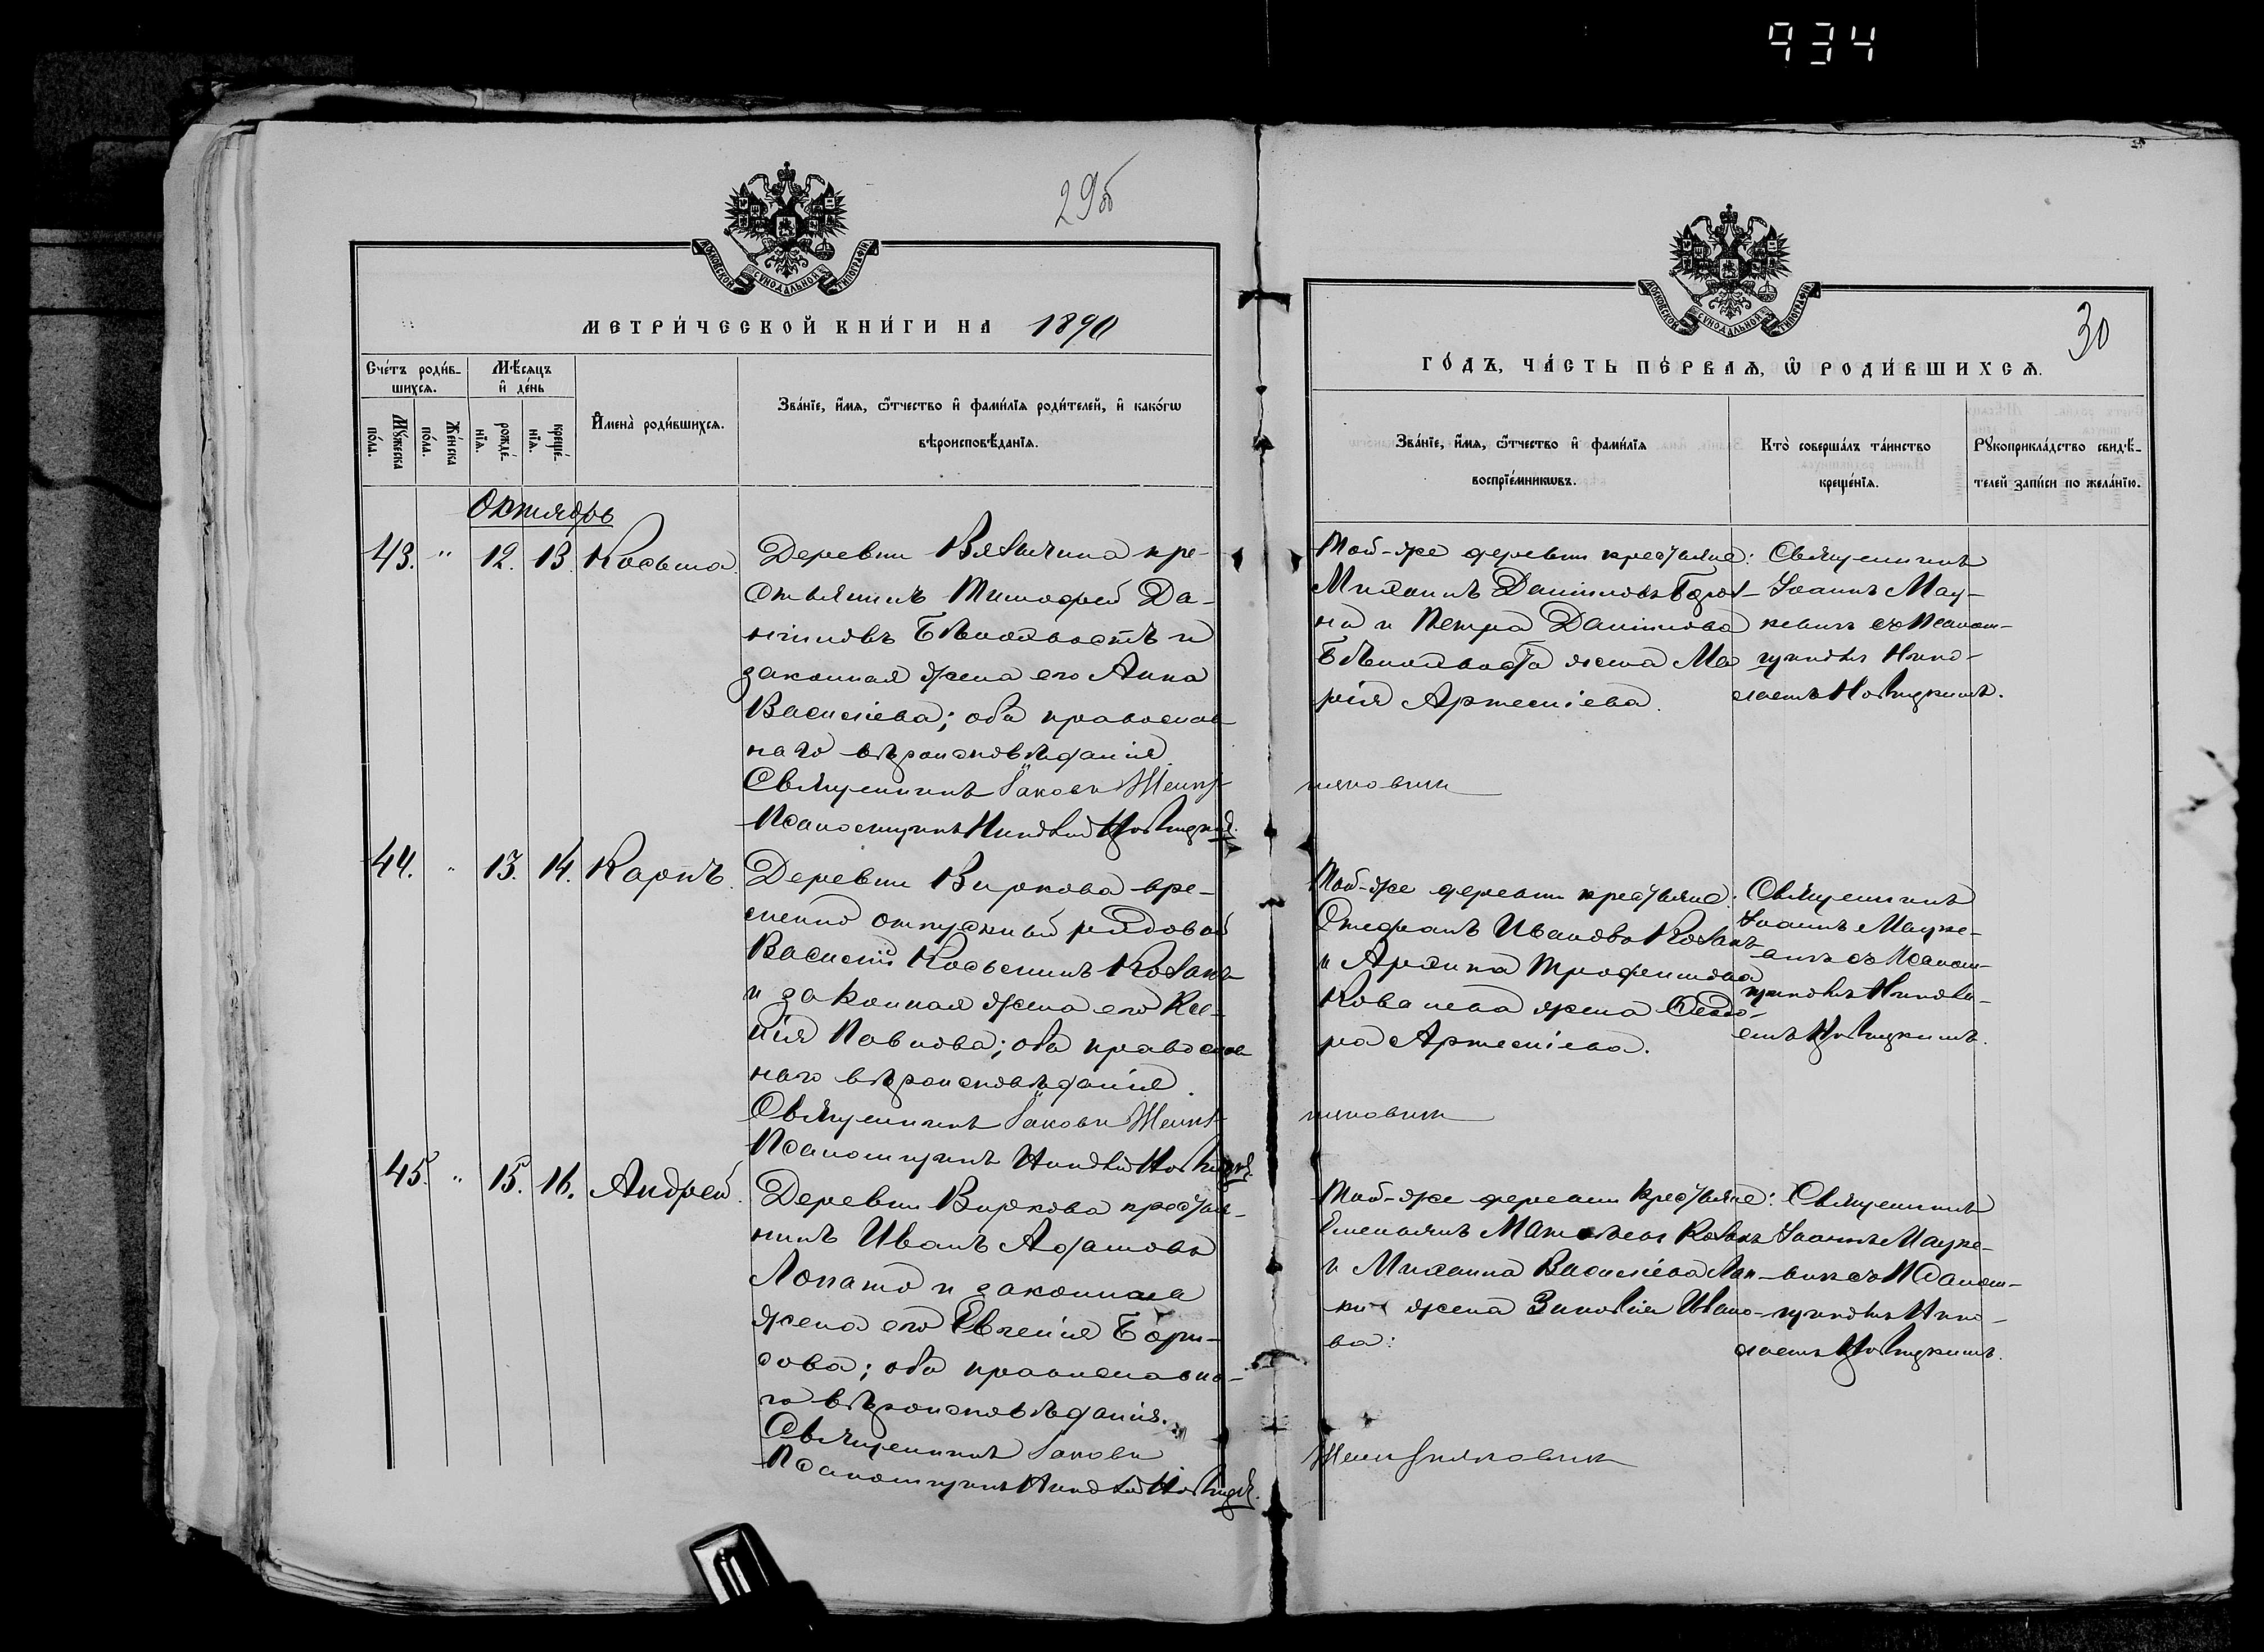 934
29об
МОСКОВСКОЙ СѴНОДАЛЬНОЙ ТИПОГРАФІИ
МЕТРИ́ЧЕСКОЙ КНИ́ГИ НА 1890
Сче́тъ роди́в-
шихся.
Мѣ́сяцъ
и҆ де́нь
Мꙋ́жеска
по́ла.
Же́нска
по́ла.
рожде́-
нїѧ.
креще́-
нїѧ.
И҆мена̀ роди́вшихсѧ.
Зва́нїе, и҆́мѧ, ѻ҆́тчество и҆ фами́лїѧ роди́телей, и҆ како́гѡ
вѣроисповѣ́данїѧ.
Октябрь
43. " 12. 13. Косьма.
Деревни Вязычина кре-
стьянинъ Тимофей Да-
ниловъ Бѣлохвостъ и
законная жена его Анна
Василіева; оба православ
наго вѣроисповѣданія.
Священникъ Іаковъ
Псаломщикъ Николай
44. " 13. 14. Карпъ.
Деревни Виркова вре-
менно отпускный рядовой
Василій Косьминъ Коваль
и законная жена его Ксе-
нія Павлова; оба православ
наго вѣроисповѣданія.
Священникъ Іаковъ
Псаломщикъ Николай
45. " 15. 16. Андрей.
Деревни Виркова крестья-
нинъ Иванъ Адамовъ
Лопато и законная
жена его Евгенія Бори-
сова; оба православна-
го вѣроисповѣданія.
Священникъ Іаковъ
Псаломщикъ Николай
МОСКОВСКОЙ СѴНОДАЛЬНОЙ ТИПОГРАФІИ
30
ГО́ДЪ, ЧА́СТЬ ПЕ́РВАѦ, Ѡ҆ РОДИ́ВШИХСѦ.
Зва́нїе, и҆́мѧ, ѻ҆́тчество и҆ фами́лїѧ
воспрїе́мникѡвъ.
Кто̀ соверша́лъ та́инство
креще́нїѧ.
Рꙋкоприкла́дство свидѣ́-
телей за́писи по жела́нїю.
Той-же деревни крестьяне:
Михаилъ Даниловъ
на и Петра Данилова
Бѣлохвоста жена Ма
рія Артеміева.
Священникъ
Іоаннъ Мац-
кевичъ съ Псалом-
щикомъ Нико-
лаемъ
Той-же деревни крестьяне:
Стефанъ Ивановъ Коваль
и Архипа Трофимова
Ковалева жена Ѳеодо-
ра Артеміева.
Священникъ
Іоаннъ Мацке-
вичъ съ Псалом-
щикомъ Никола-
емъ
Той-же деревни крестьяне:
Емельянъ Матѳеевъ Коваль
и Михаила Василіева Лап-
ки жена Зиновія Ивано-
ва:
Священникъ
Іоаннъ Мацке-
вичъ съ Псалом-
щикомъ Нико-
лаемъ